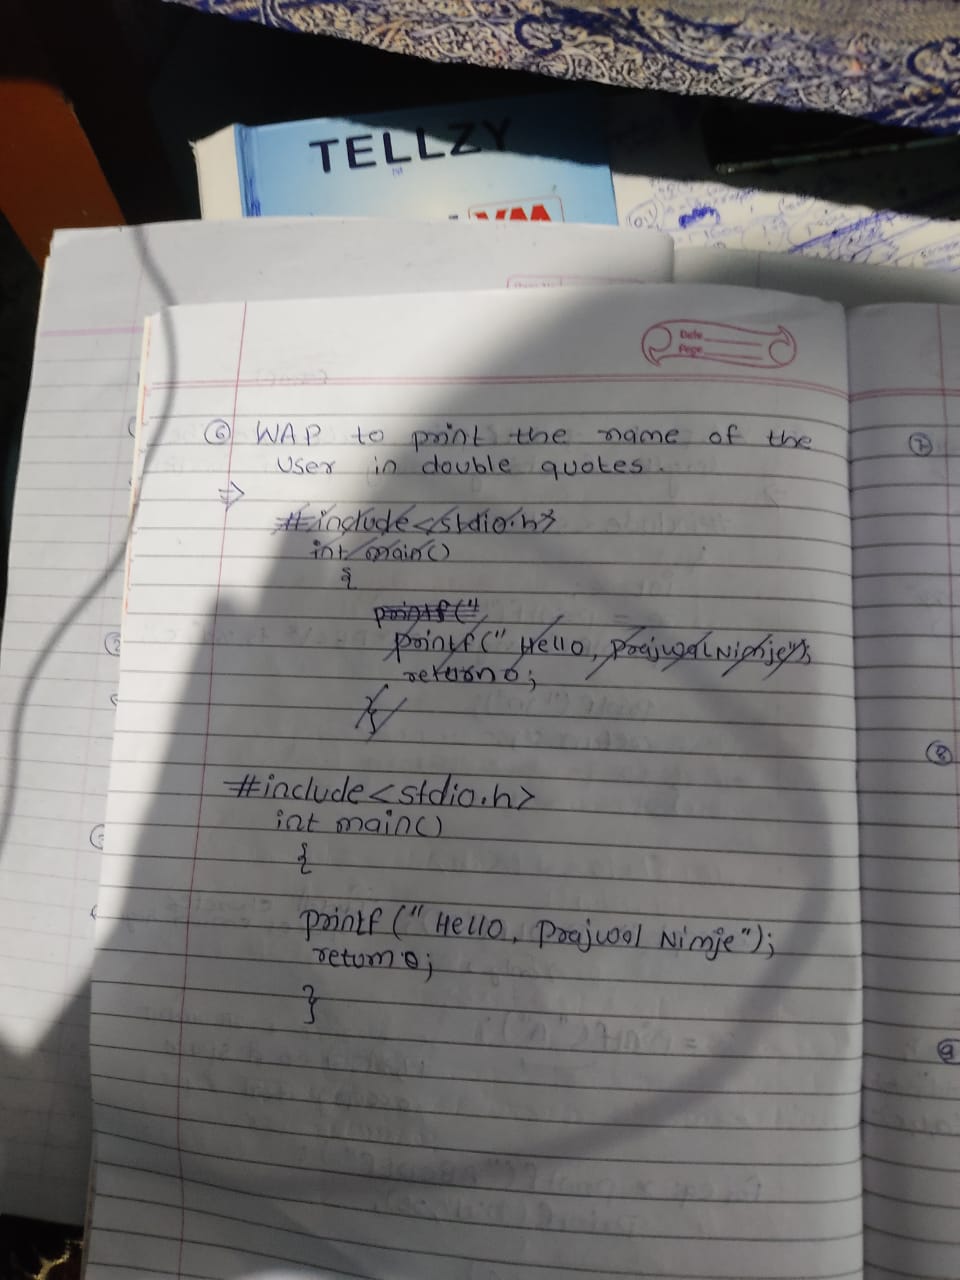 TELLZY
Date
Page
6 WAP to print the name of the
User in double quotes.
⇒
#include<stdio.h>
int main()
{
printf("
printf(" Hello, Prajwal Nimje");
return 0;
}
#include<stdio.h>
int main()
{
printf (" Hello, Prajwal Nimje");
return 0;
}
7
8
9